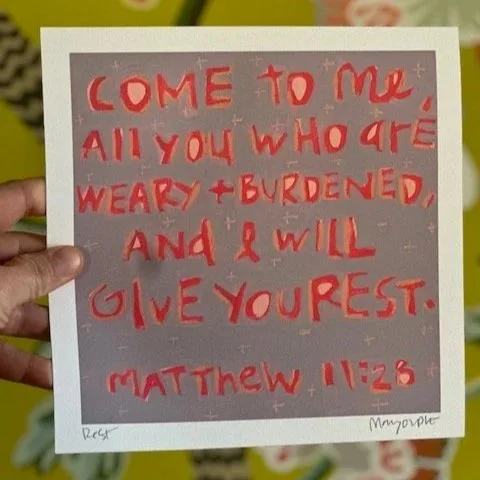 COME TO Me,
All YOU WHO arE
WEARY + BURDENED,
AND I WILL
GIVE YOU REST.
MATTHew 11:28
Rest